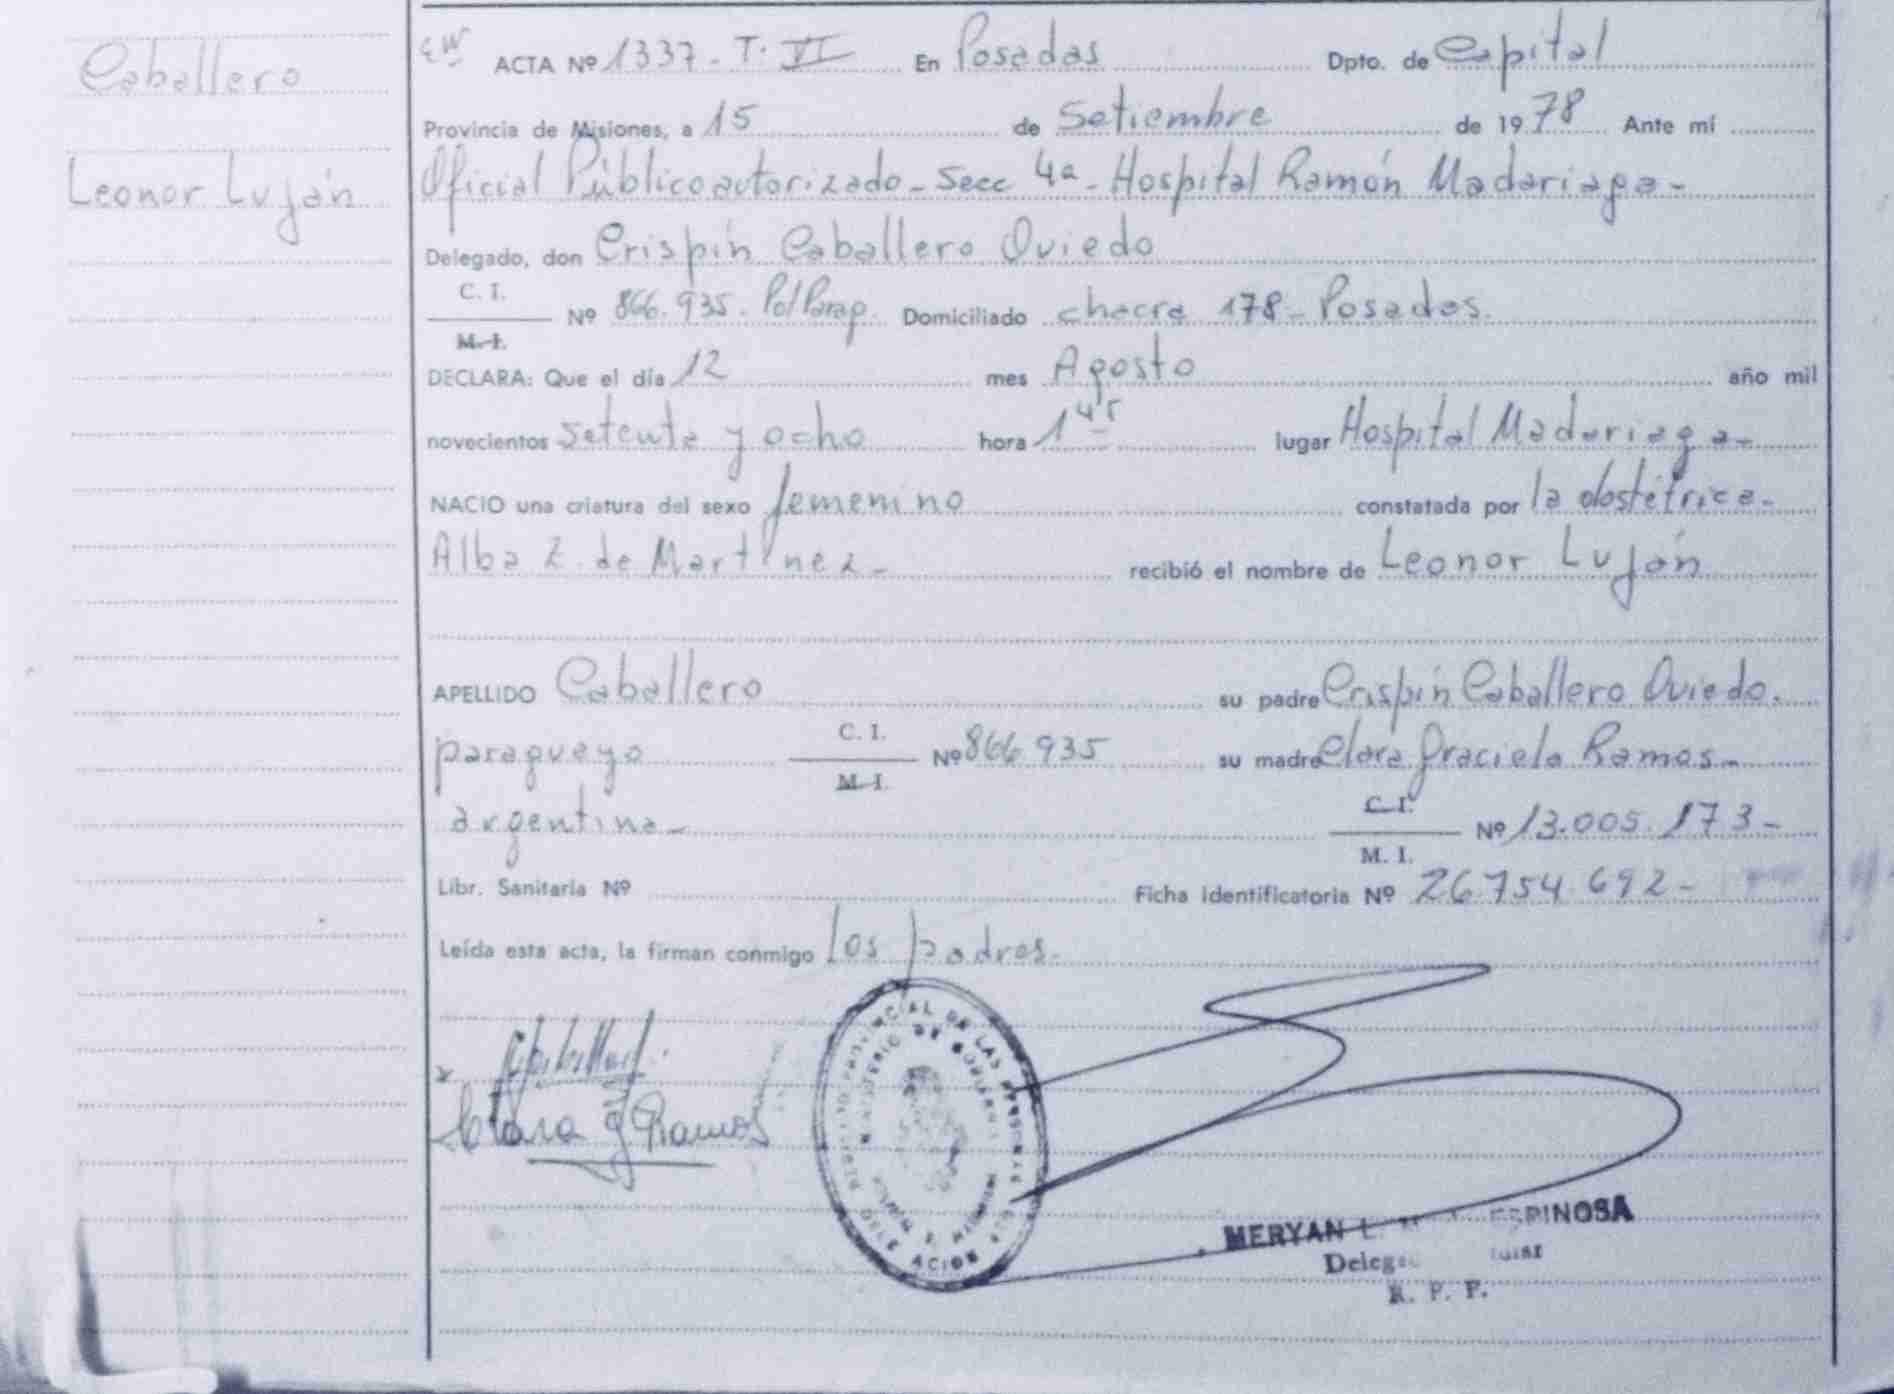 Caballero
Leonor Luján
ACTA Nº 1337 - T. VI En Posadas Dpto. de Capital
Provincia de Misiones, a 15 de Setiembre de 1978 Ante mí
Oficial Público autorizado - Secc 4a - Hospital Ramón Madariaga -
Delegado, don Crispín Caballero Oviedo
C. I.
Nº 866.935. Pol Parag. Domiciliado chacra 178 - Posadas.
M. I.
DECLARA: Que el día 12 mes Agosto año mil
novecientos setenta y ocho hora 1 45 lugar Hospital Madariaga -
NACIO una criatura del sexo femenino constatada por la obstétrica -
Alba Z. de Martínez - recibió el nombre de Leonor Luján
APELLIDO Caballero su padre Crispín Caballero Oviedo.
paraguayo C. I. M. I. Nº 866.935 su madre Clara Graciela Ramos -
argentina - C. I. M. I. Nº 13.005.173 -
Libr. Sanitaria Nº Ficha identificatoria Nº 26.754.692 -
Leída esta acta, la firman conmigo los padres.
Clara G Ramos
MERYAN L. ESPINOSA
R. P. P.